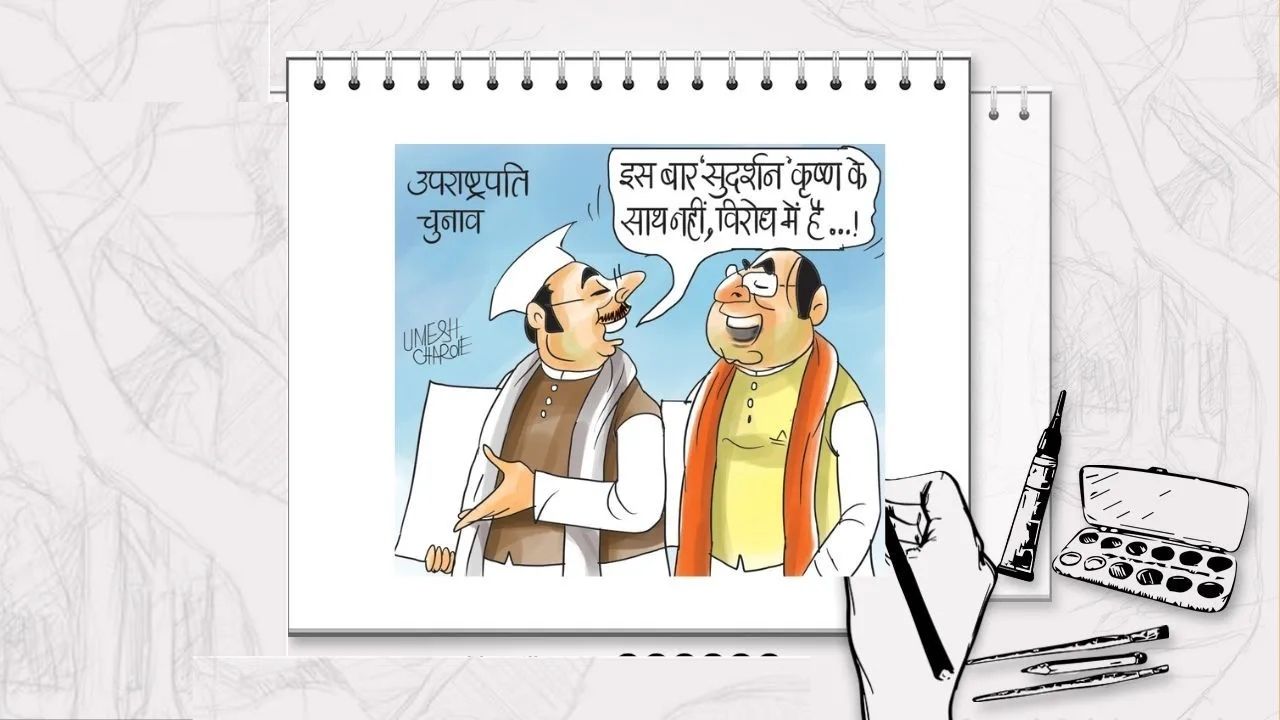 उपराष्ट्रपति
चुनाव
इस बार 'सुदर्शन' कृष्ण के
साथ नहीं, विरोध में है...!
UMESH
CHARDE